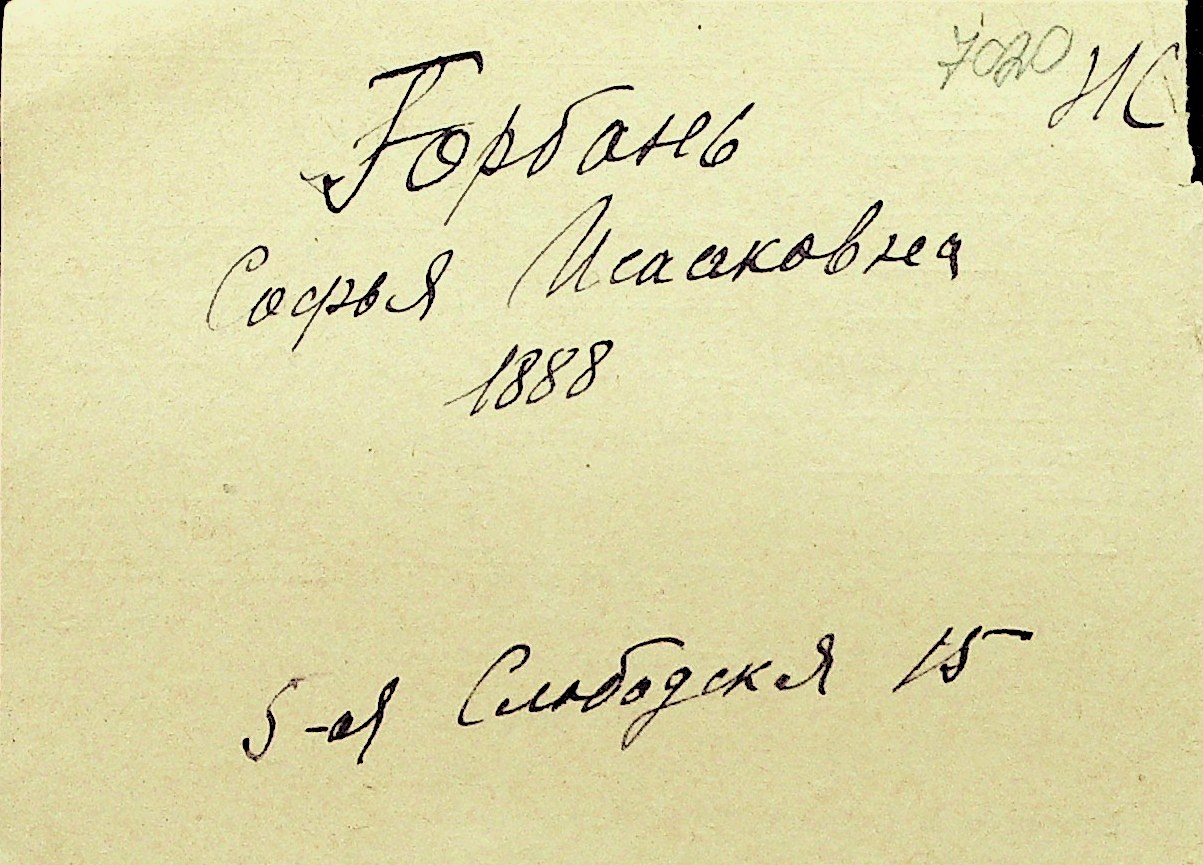 7020 НС
Горбань
Софья Исааковна
1888
5-ая Слободская 15